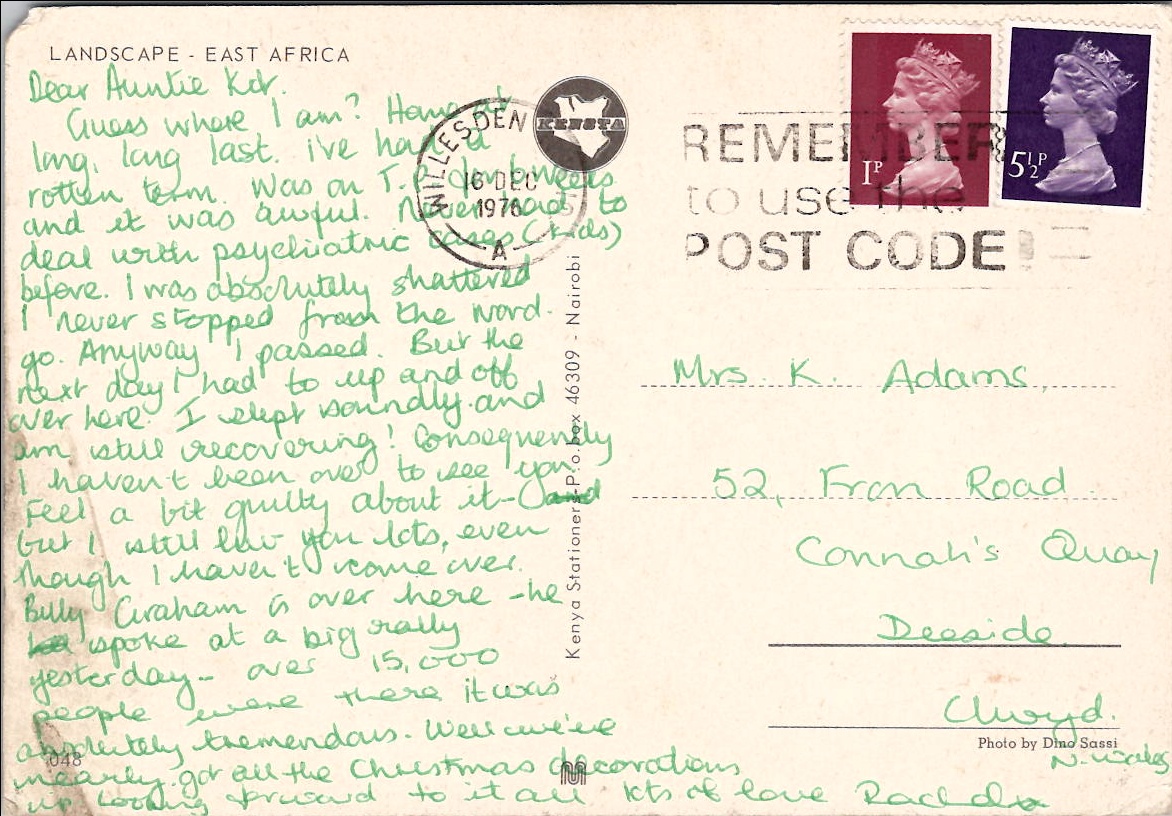 LANDSCAPE - EAST AFRICA
Dear Auntie Kat.
Guess where I am? Home at
long, long last. i've had a
rotten term. Was on T.P. for weeks
and it was awful. Never had to
deal with psychiatric cases (kids)
before. I was absolutely shattered
I never stopped from the word.
go. Anyway I passed. But the
next day I had to up and off
over here. I slept soundly and
am still recovering! Consequently
I haven't been over to see you
Feel a bit guilty about it -
but I still luv you lots, even
though I haven't come over.
Billy Graham is over here - he
spoke at a big rally
yesterday - over 15,000
people were there it was
absolutely tremendous. Well we've
nearly got all the Christmas decorations
up looking forward to it all lots of love Rachel x
048
KENSTA
WILLESDEN
16 DEC
1976
A
Kenya Stationers P.o.box 46309 - Nairobi
1P
5½P
REMEMBER
to use the
POST CODE
Mrs. K. Adams,
52, Fron Road
Connah's Quay
Deeside
Clwyd.
N. Wales
Photo by Dino Sassi